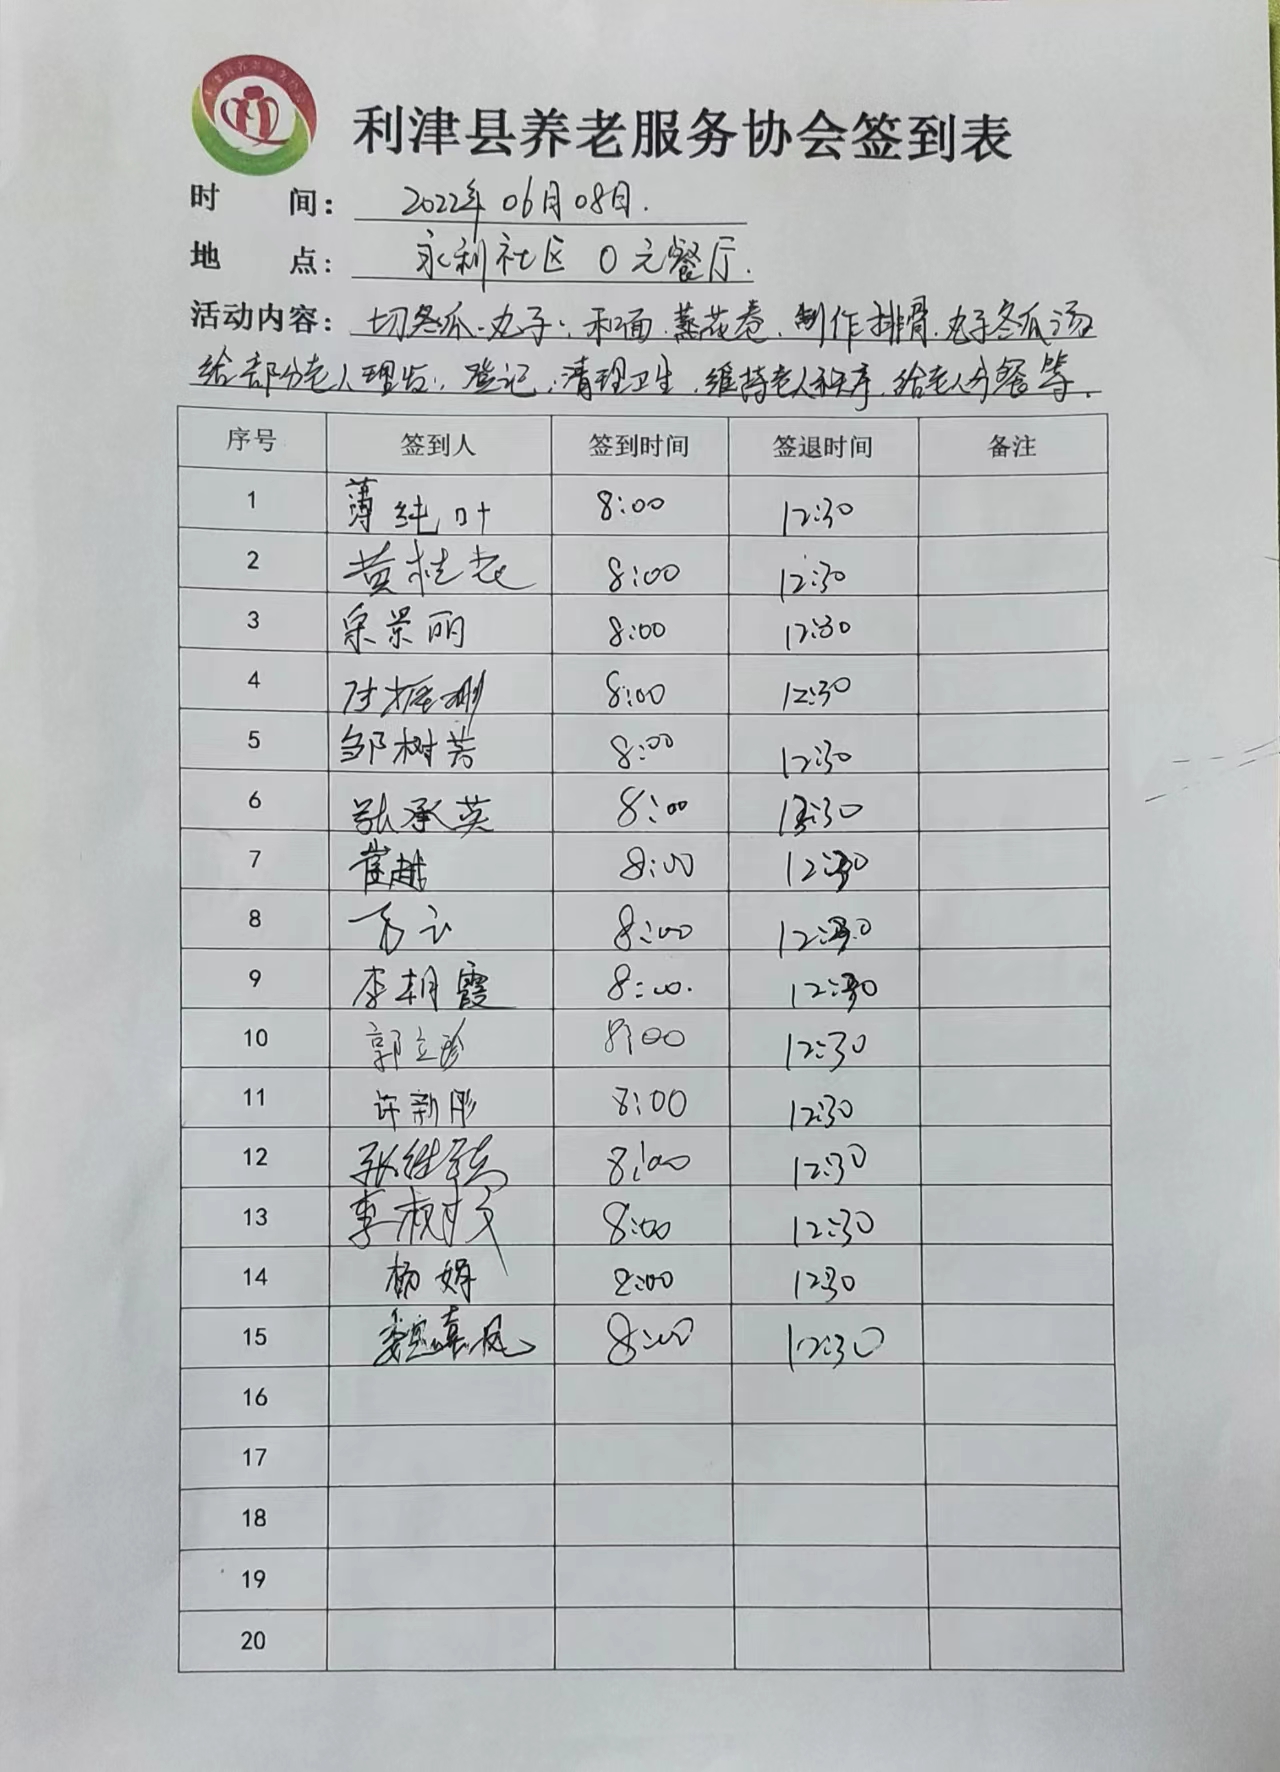 利津县养老服务协会签到表
时 间： 2022年06月08日.
地 点： 永利社区 0元餐厅.
活动内容： 切冬瓜.丸子、和面.蒸花卷.制作排骨.丸子冬瓜汤
给部分老人理发、登记、清理卫生.维持老人秩序.给老人分餐等.
序号 签到人 签到时间 签退时间 备注
1 薄纯叶 8:00 12:30
2 黄桂 8:00 12:30
3 景丽 8:00 12:30
4 8:00 12:30
5 邹树芳 8:00 12:30
6 张承英 8:00 12:30
7 崔越 8:00 12:30
8 8:00 12:30
9 李朝霞 8:00. 12:30
10 郭立珍 8:00 12:30
11 许新彤 8:00 12:30
12 张继 8:00 12:30
13 李树文 8:00 12:30
14 杨娟 8:00 12:30
15 凤 8:00 12:30
16
17
18
19
20